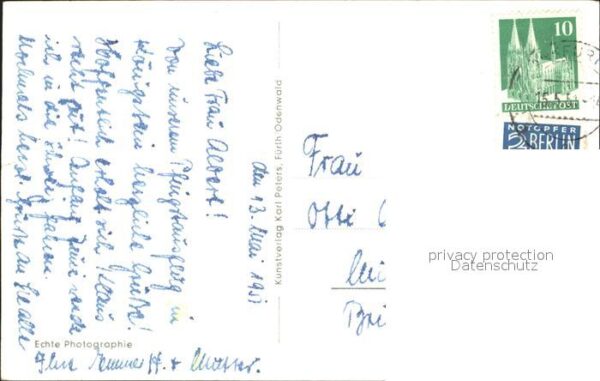 den 13. Mai 1951
Liebe Frau Albert!
Von unserem Pfingstausflug in
Königstein herzliche Grüße!
Hoffentlich erholt sich Klaus
recht gut! Anfang Juni werde
ich in die Schweiz fahren.
Nochmals herzl. Grüße an alle
Ihre
+ Mutter.
Echte Photographie
Kunstverlag Karl Peters, Fürth Odenwald
10
DEUTSCHE POST
NOTOPFER
2 BERLIN
Frau
Otti
privacy protection
Datenschutz